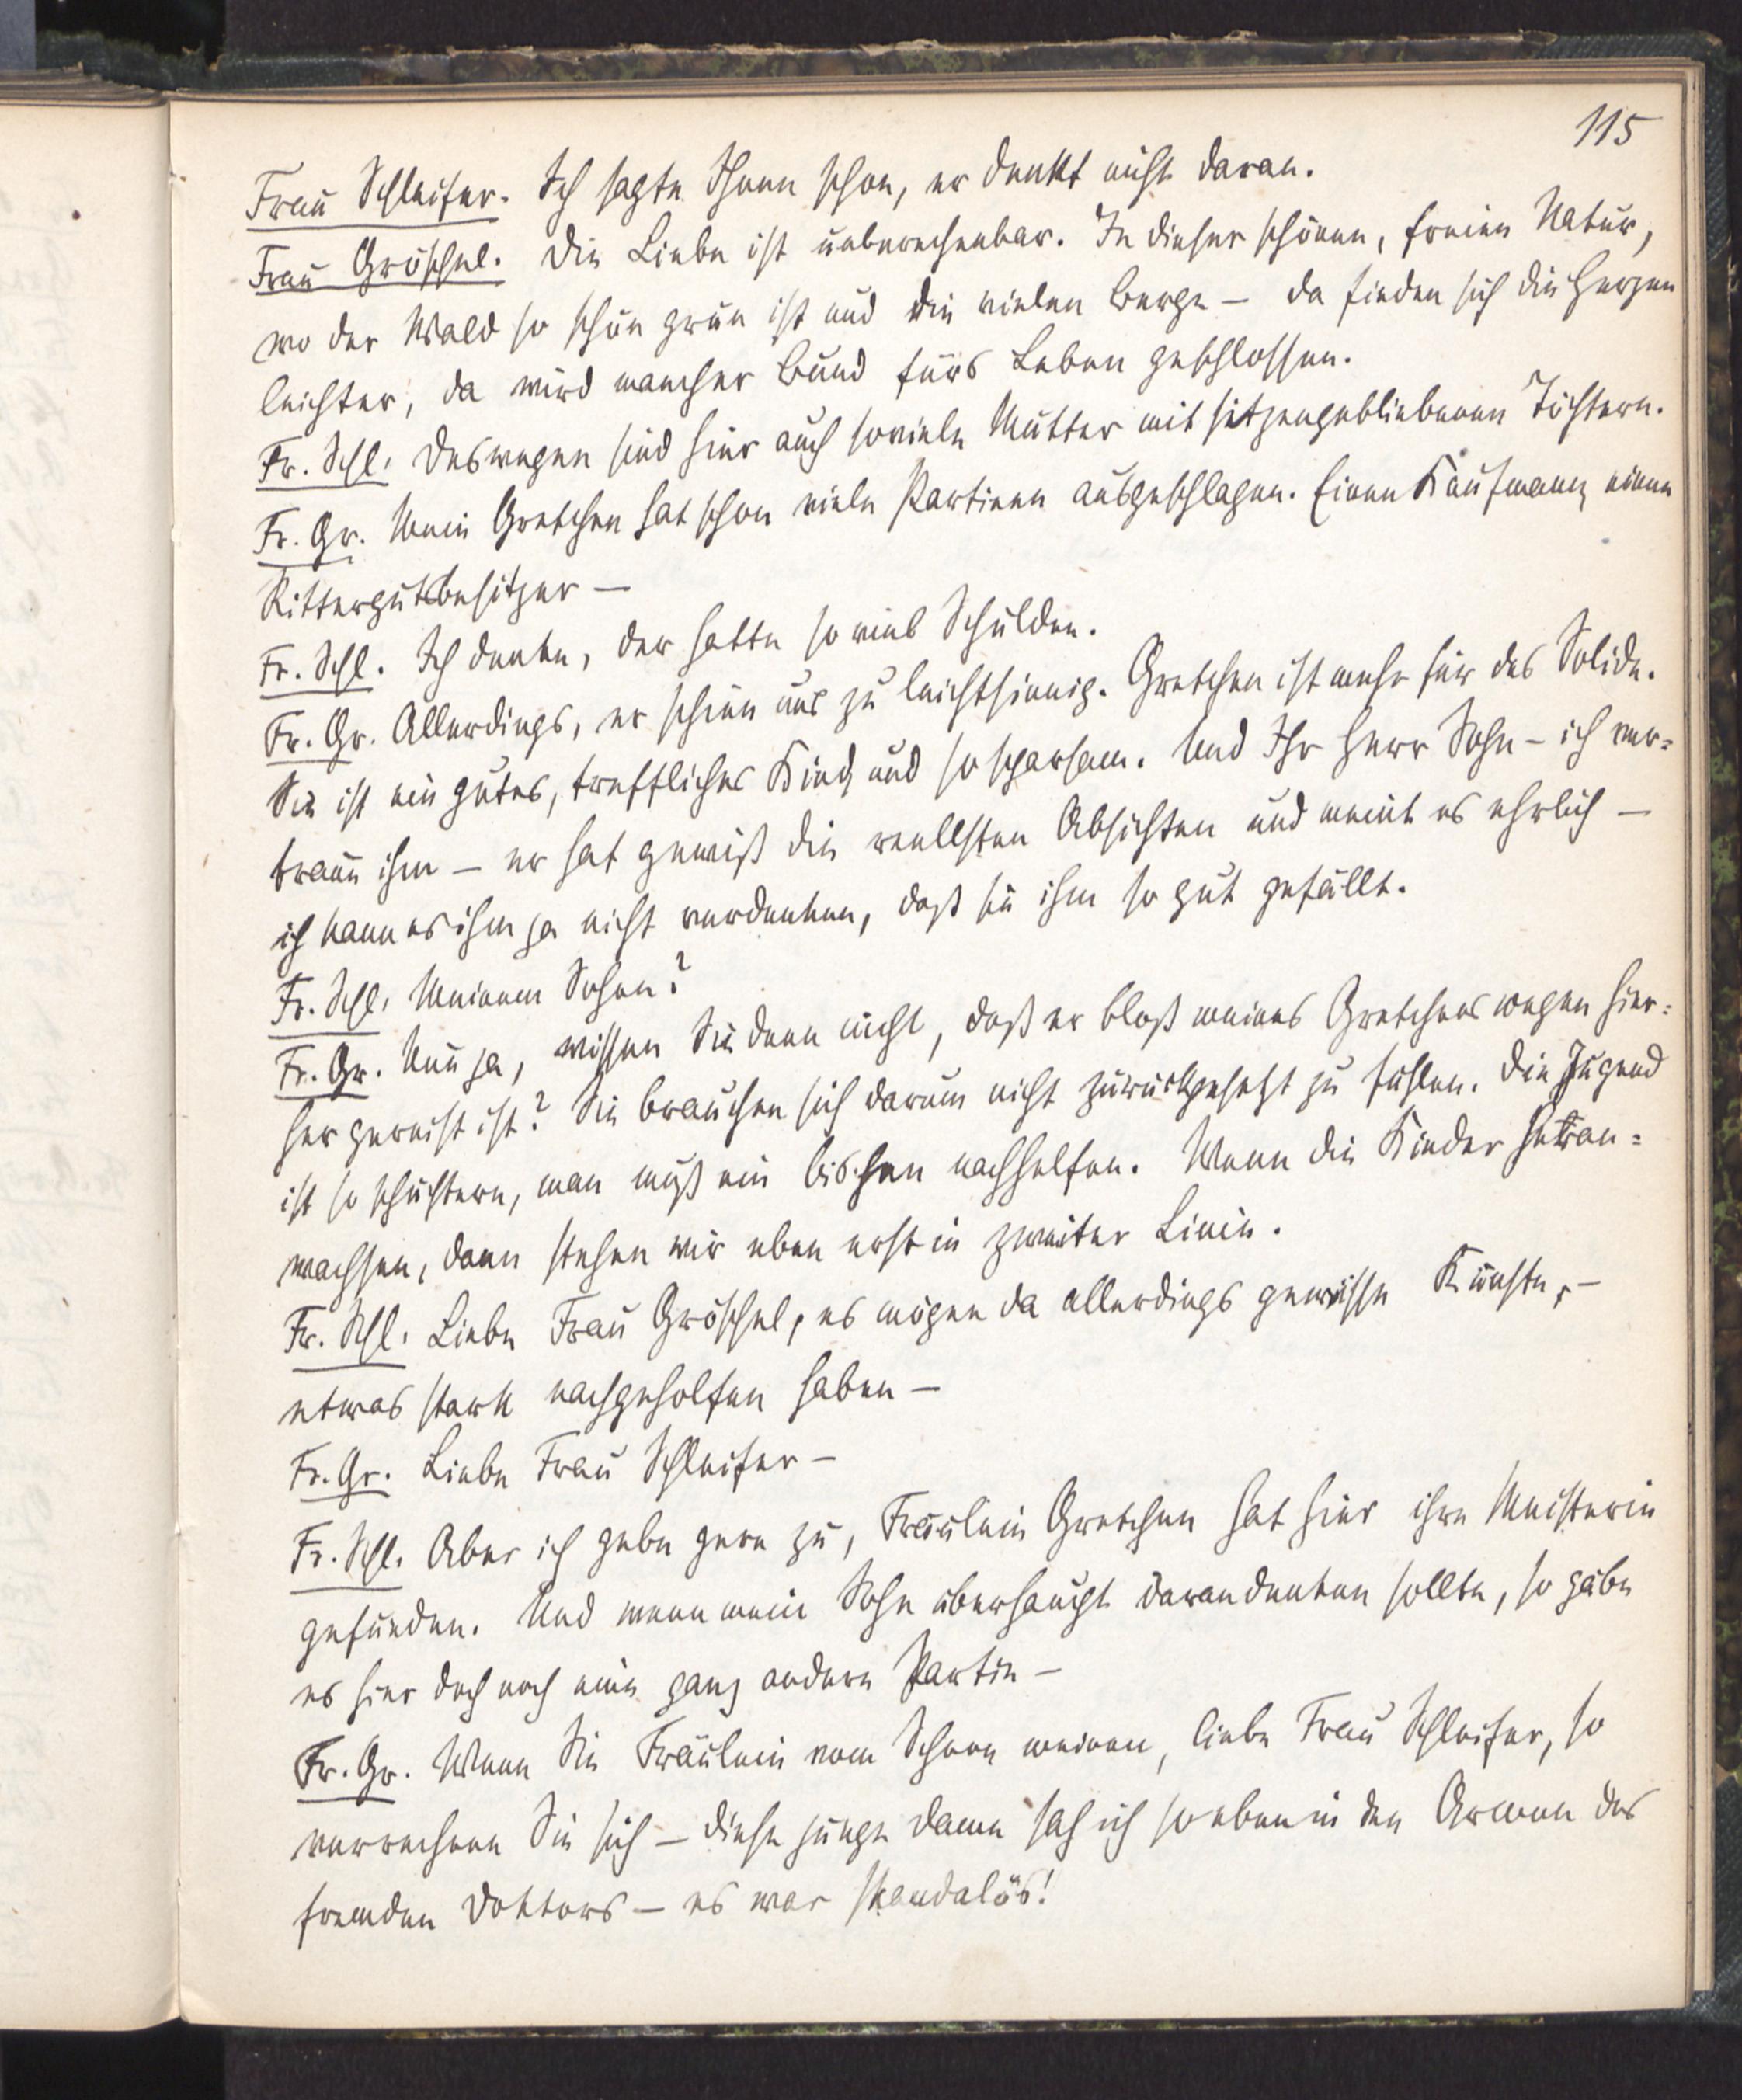 115
Frau Schleifer. Ich sagte Ihnen schon, er denkt nicht daran.
Frau Gröschel. Die Liebe ist unberechenbar. In dieser schönen, freien Natur,
wo der Wald so schön grün ist und die vielen Berge – da finden sich die Herzen
leichter, da wird mancher Bund fürs Leben geschlossen.
Fr. Schl. Deswegen sind hier auch soviele Mütter mit sitzengebliebenen Töchtern.
Fr. Gr. Mein Gretchen hat schon viele Partieen ausgeschlagen. Einen Kaufmann, einen
Rittergutsbesitzer –
Fr. Schl. Ich denke, der hatte so viel Schulden.
Fr. Gr. Allerdings, er schien uns zu leichtsinnig. Gretchen ist mehr für das Solide.
Sie ist ein gutes, treffliches Kind, und so sparsam. Und Ihr Herr Sohn – ich ver-
traue ihm – er hat gewiß die reellsten Absichten und meint es ehrlich –
ich kann es ihm ja nicht verdenken, daß sie ihm so gut gefällt.
Fr. Schl. Meinem Sohn?
Fr. Gr. Nun ja, wissen Sie denn nicht, daß er bloß meines Gretchens wegen hier-
her gereist ist? Sie brauchen sich darum nicht zurückgesetzt zu fühlen. Die Jugend
ist so schüchtern, man muß ein bischen nachhelfen. Wenn die Kinder heran-
wachsen, dann stehen wir eben erst in zweiter Linie.
Fr. Schl. Liebe Frau Gröschel, es mögen da allerdings gewisse Künste, –
etwas stark nachgeholfen haben –
Fr. Gr. Liebe Frau Schleifer –
Fr. Schl. Aber ich gebe gern zu, Fräulein Gretchen hat hier ihre Meisterin
gefunden. Und wenn mein Sohn überhaupt daran denken sollte, so gäbe
es hier doch noch eine ganz andere Partie –
Fr. Gr. Wenn Sie Fräulein vom Schorn meinen, liebe Frau Schleifer, so
verrechnen Sie sich – diese junge Dame sah ich soeben in den Armen des
fremden Doktors – es war skandalös!